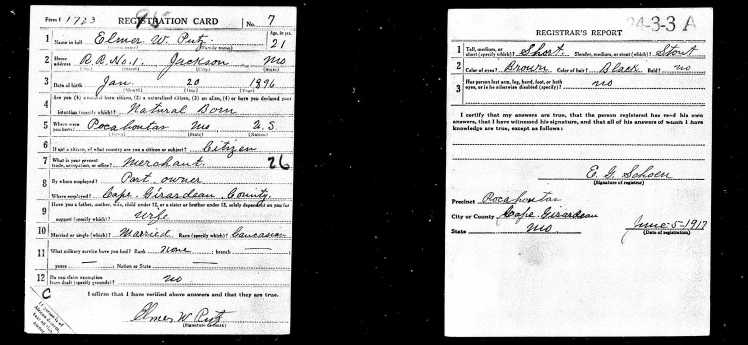 Form 1 1723 REGISTRATION CARD No. 7
1 Name in full Elmer W. Putz Age, in yrs. 21
(Given name) (Family name)
2 Home address R.R. No. 1. Jackson Mo
(No.) (Street) (City) (State)
3 Date of birth Jan 20 1896
(Month) (Day) (Year)
4 Are you (1) a natural born citizen, (2) a naturalized citizen, (3) an alien, (4) or have you declared your
intention (specify which)? Natural Born
5 Where were you born? Pocahontas Mo U.S.
(Town) (State) (Nation)
6 If not a citizen, of what country are you a citizen or subject? Citizen
7 What is your present trade, occupation, or office? Merchant 26
8 By whom employed? Part owner
Where employed? Cape Girardeau County
9 Have you a father, mother, wife, child under 12, or a sister or brother under 12, solely dependent on you for
support (specify which)? Wife
10 Married or single (which)? Married Race (specify which)? Caucasian
11 What military service have you had? Rank None ; branch —
years — Nation or State —
12 Do you claim exemption from draft (specify grounds)? No
I affirm that I have verified above answers and that they are true.
C
Elmer W Putz
(Signature or mark)
24-3-3 A
REGISTRAR'S REPORT
1 Tall, medium, or short (specify which)? Short Slender, medium, or stout (which)? Stout
2 Color of eyes? Brown Color of hair? Black Bald? No
3 Has person lost arm, leg, hand, foot, or both eyes, or is he otherwise disabled (specify)? No
I certify that my answers are true, that the person registered has read his own
answers, that I have witnessed his signature, and that all of his answers of which I have
knowledge are true, except as follows:
E. G. Schoen
(Signature of registrar)
Precinct Pocahontas
City or County Cape Girardeau
State Mo
June-5-1917
(Date of registration)